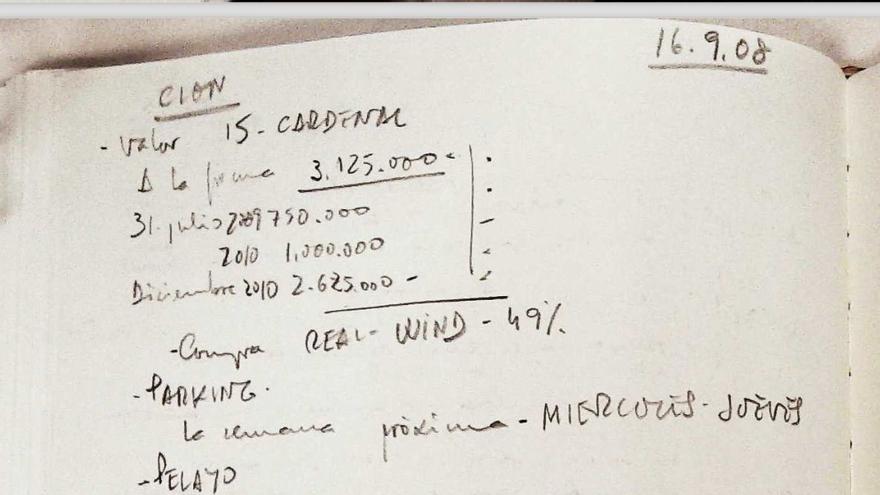 16.9.08
CION
- Valor 15 - CARDENAL
A la firma 3.125.000 -
31. julio 2009 750.000
2010 1.000.000
Diciembre 2010 2.625.000 -
- Compra REAL - WIND - 49%
- PARKING.
la semana próxima - MIERCOLES - JUEVES
- PELAYO